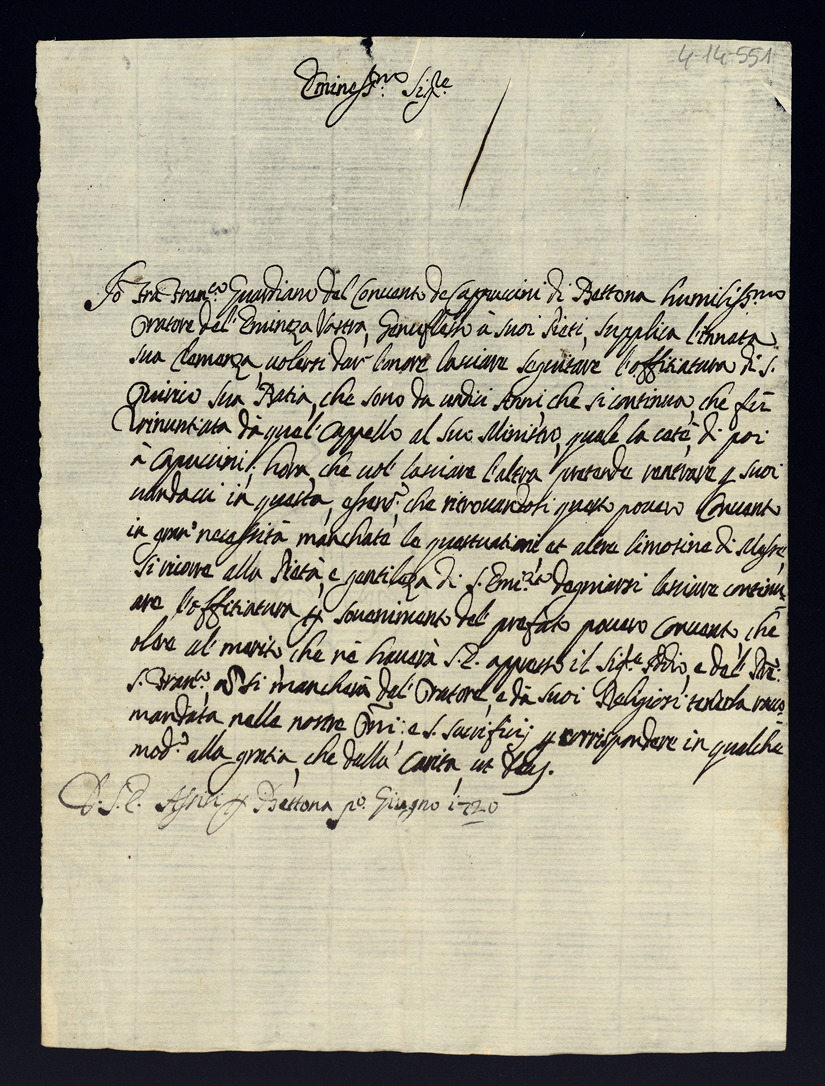 4-14-551
Eminess.mo Sig.re
Io frà Fran.co Guardiano del Convento de Cappuccini di Bettona humilissimo
Oratore del' Eminēza Vostra, Genuflesso à suoi Piedi, supplica l'innata
sua Clemenza volersi dar' l'onore lasciare seguitare l'offitiatura di S.
Quirico sua Batia, che sono da undici Anni che si continua, che fù
rinuntiata dà quel' Cappello al suo Ministro, quale la cetè di poi
à Capuccini, hora, che vol' lasciare l'altra pretende rentrare p suoi
in questa, che ritrovandosi questo povero Convento
in gran' necessità màchate le questuationi et altre limosine di Messe
si ricorre alla Pietà, e gentileza di S. Emi.za degniarsi lasciare continu
are l'offitiatura p sovenimento del prefato povero Convento che
oltre al merito che nè haverà S.E. appresso il Sig.re Iddio, e del'
S. Fran.co nō si mancherà del' Oratore, e dà suoi Religiosi tenerla racco
mandata nelle nostre e S. Sacrificij p corrispondere in qualche
mod.o alla gratia, che dalla' Carità ut Deus.
D. S. E. Bettona p.o Giugno 1720